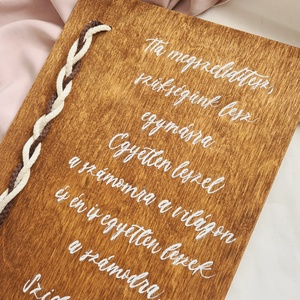 Ha megszelidítesz,
szükségünk lesz
egymásra
Egyetlen leszel
a számomra a világon
és én is egyetlen leszek
a számodra